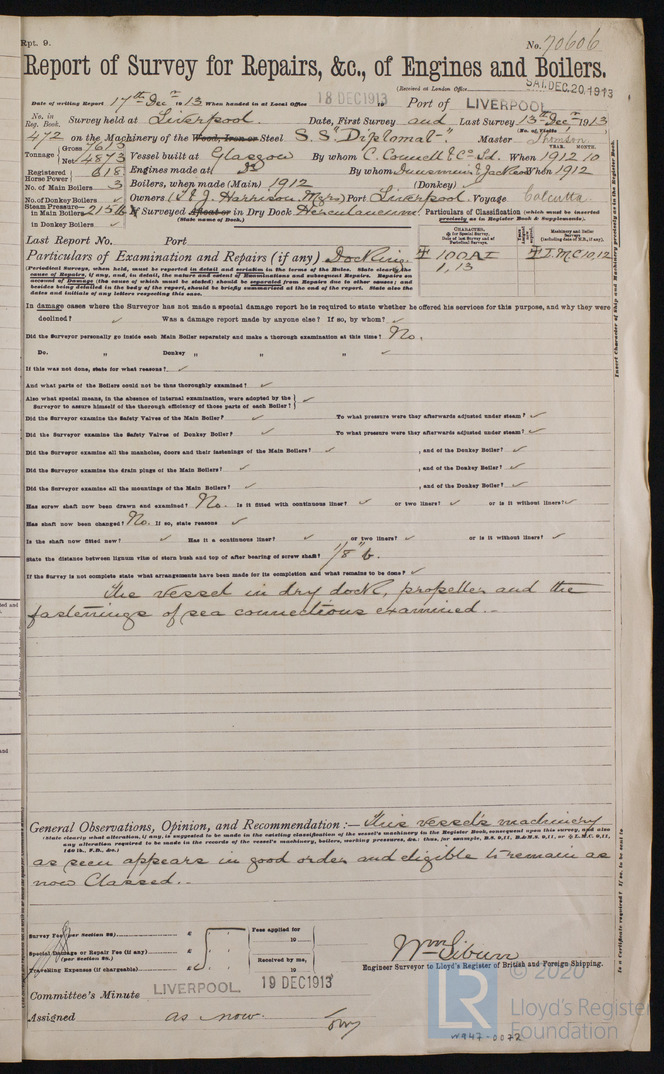 Rpt. 9.
No. 70606
Report of Survey for Repairs, &c., of Engines and Boilers.
(Received at London Office SAT. DEC. 20. 1913
Date of writing Report 17th Decr 1913 When handed in at Local Office 18 DEC 1913 Port of LIVERPOOL
No. in Reg. Book. Survey held at Liverpool. Date, First Survey and Last Survey 13th Decr 1913
(No. of Visits 1)
472 on the Machinery of the Wood, Iron or Steel S. S. "Diplomat". Master Thomson
Tonnage Gross 7615
Net 4873 Vessel built at Glasgow By whom C. Connell & Co Ld. When 1912 10
YEAR. MONTH.
Registered Horse Power 618 Engines made at Do By whom Dunsmuir & Jackson When 1912
No. of Main Boilers 3 Boilers, when made (Main) 1912 (Donkey) ✓
No. of Donkey Boilers ✓ Owners (T & J. Harrison Mgrs) Port Liverpool. Voyage Calcutta
Steam Pressure in Main Boilers 215 lb If Surveyed Afloat or in Dry Dock Herculaneum.
(State name of Dock.)
in Donkey Boilers ✓
Particulars of Classification (which must be inserted precisely as in Register Book & Supplements).
Last Report No. Port
Particulars of Examination and Repairs (if any) Docking.
100 A1
1,13
L.M.C 10,12
(Periodical Surveys, when held, must be reported in detail and seriatim in the terms of the Rules. State clearly the
cause of Repairs, if any, and, in detail, the nature and extent of Examinations and subsequent Repairs. Repairs on
account of Damage (the cause of which must be stated) should be separated from Repairs due to other causes; and
besides being detailed in the body of the report, should be briefly summarised at the end of the report. State also the
dates and initials of any letters respecting this case.
In damage cases where the Surveyor has not made a special damage report he is required to state whether he offered his services for this purpose, and why they were
declined? ✓ Was a damage report made by anyone else? If so, by whom? ✓
Did the Surveyor personally go inside each Main Boiler separately and make a thorough examination at this time? No.
Do. " Donkey " " " ✓
If this was not done, state for what reasons? ✓
And what parts of the Boilers could not be thus thoroughly examined? ✓
Also what special means, in the absence of internal examination, were adopted by the
Surveyor to assure himself of the thorough efficiency of those parts of each Boiler? ✓
Did the Surveyor examine the Safety Valves of the Main Boiler? ✓ To what pressure were they afterwards adjusted under steam? ✓
Did the Surveyor examine the Safety Valves of Donkey Boiler? ✓ To what pressure were they afterwards adjusted under steam? ✓
Did the Surveyor examine all the manholes, doors and their fastenings of the Main Boilers? ✓ , and of the Donkey Boiler? ✓
Did the Surveyor examine the drain plugs of the Main Boilers? ✓ , and of the Donkey Boiler? ✓
Did the Surveyor examine all the mountings of the Main Boilers? ✓ , and of the Donkey Boiler? ✓
Has screw shaft now been drawn and examined? No. Is it fitted with continuous liner? ✓ or two liners? ✓ or is it without liners? ✓
Has shaft now been changed? No. If so, state reasons ✓
Is the shaft now fitted new? ✓ Has it a continuous liner? ✓ or two liners? ✓ or is it without liner? ✓
State the distance between lignum vitæ of stern bush and top of after bearing of screw shaft? 1/8" b.
If the Survey is not complete state what arrangements have been made for its completion and what remains to be done? ✓
The vessel in dry dock, propeller and the
fastenings of sea connections examined.-
General Observations, Opinion, and Recommendation :— This vessel's machinery
(State clearly what alteration, if any, is suggested to be made in the existing classification of the vessel's machinery in the Register Book, consequent upon this survey, and also
any alteration required to be made in the records of the vessel's machinery, boilers, working pressures, &c.: thus, for example, B.S. 9,11, B.&M.S. 9,11, or L.M.C. 9,11,
140 lb., F.D., &c.)
as seen appears in good order and eligible to remain as
now Classed.-
Survey Fee (per Section 28) £
Fees applied for
19
Special Damage or Repair Fee (if any) £
(per Section 28.)
Received by me,
Travelling Expenses (if chargeable) £
19
Wm Siburn
Engineer Surveyor to Lloyd's Register of British and Foreign Shipping.
Committee's Minute LIVERPOOL. 19 DEC 1913
Assigned as now.
© 2020
LR
Lloyd's Register
Foundation
W947-0072